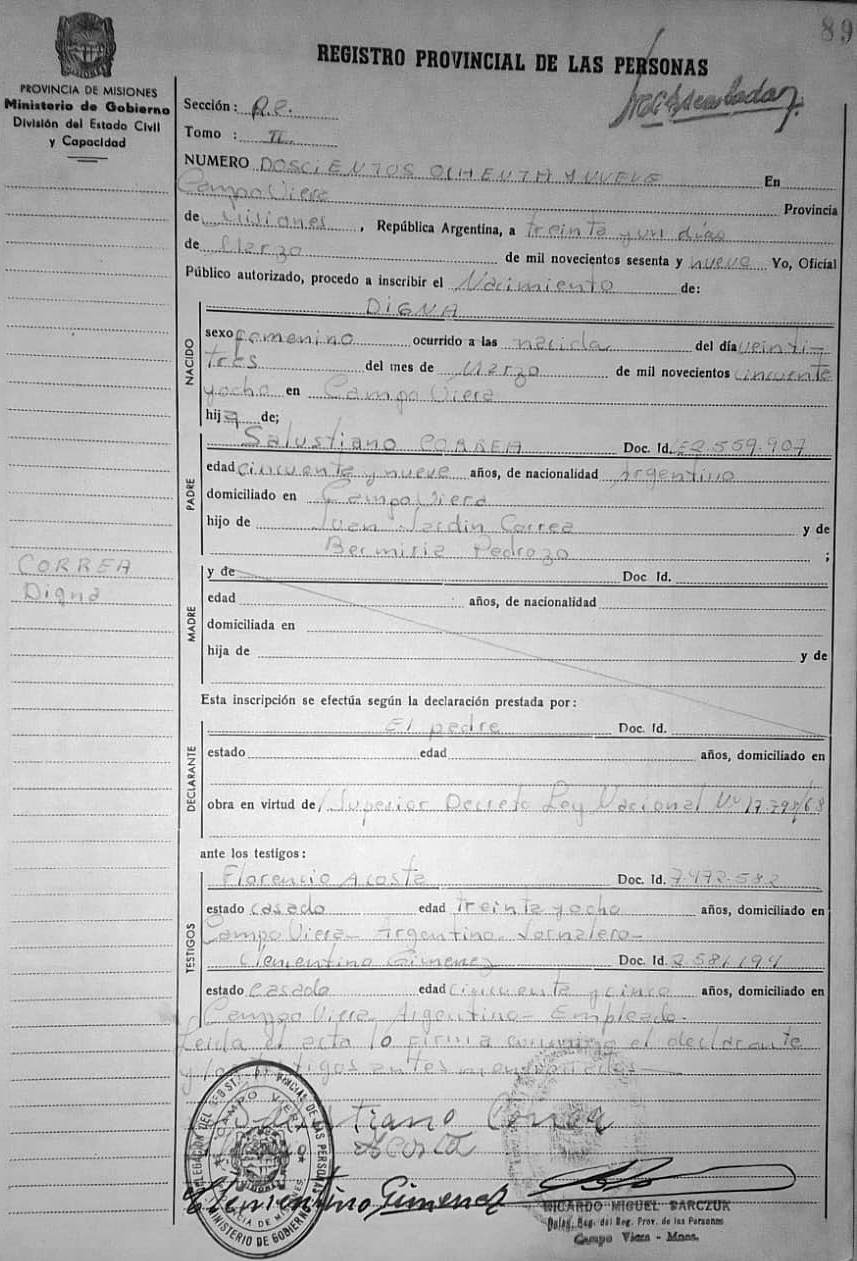 89
REGISTRO PROVINCIAL DE LAS PERSONAS
PROVINCIA DE MISIONES
Ministerio de Gobierno
División del Estado Civil
y Capacidad
Sección: R.C.
Tomo : II
NUMERO DOSCIENTOS OCHENTA Y NUEVE En
Campo Viera Provincia
de Misiones, República Argentina, a treinta y un días
de Marzo de mil novecientos sesenta y nueve Yo, Oficial
Público autorizado, procedo a inscribir el Nacimiento de:
NACIDO
DIGNA
sexo femenino ocurrido a las nacida del día veinti-
trés del mes de Marzo de mil novecientos cincuenta
y ocho en Campo Viera
hija de;
PADRE
Salustiano CORREA Doc. Id. 2.559.907
edad cincuenta y nueve años, de nacionalidad Argentino
domiciliado en Campo Viera
hijo de Juan Jardin Correa y de
Pedrozo ;
CORREA
Digna
MADRE
y de Doc Id.
edad años, de nacionalidad
domiciliada en
hija de y de
Esta inscripción se efectúa según la declaración prestada por:
DECLARANTE
El padre Doc. Id.
estado edad años, domiciliado en
obra en virtud de Superior Decreto Ley Nacional Nº 17.798/68
ante los testigos:
TESTIGOS
Florencio Acosta Doc. Id. 7.472.582
estado casado edad treinta y ocho años, domiciliado en
Campo Viera- Argentino- Jornalero-
Clementino Gimenez Doc. Id. 2.581.194
estado casado edad cincuenta y cinco años, domiciliado en
Campo Viera. Argentino- Empleado.
Leida el acta lo firma conmigo el declarante
y los testigos antes mencionados-
Salustiano Correa
Acosta
Clementino Gimenez
DELEGACION DEL REGST. PROVINCIAL DE LAS PERSONAS
CAMPO VIERA
PROVINCIA DE MISIONES
MINISTERIO DE GOBIERNO
RICARDO MIGUEL BARCZUK
Deleg. Reg. del Reg. Prov. de las Personas
Campo Viera - Mnes.